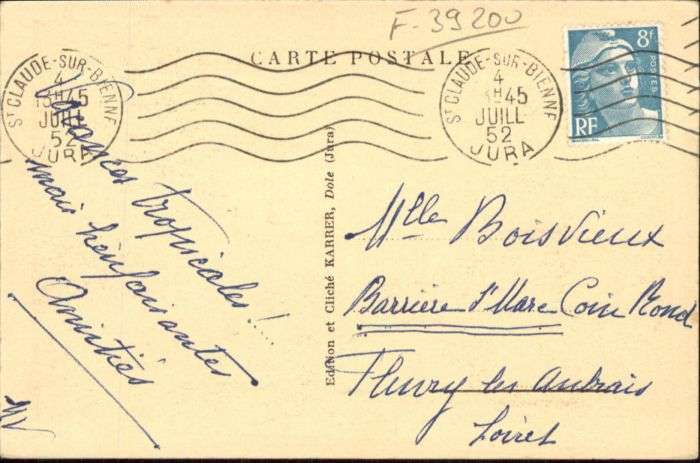 F-39200
CARTE POSTALE
8f
POSTES
RF
ST CLAUDE-SUR-BIENNE
4
13H45
JUIL
52
JURA
ST CLAUDE-SUR-BIENNE
4
13H45
JUILL
52
JURA
Vacances tropicales!!!
mais bienfaisantes
Amitiés
MV
Edition et Cliché KARRER, Dole (Jura)
Mlle Boisvieux
Barrière St Marc Coin Rond
Fleury les Aubrais
Loiret